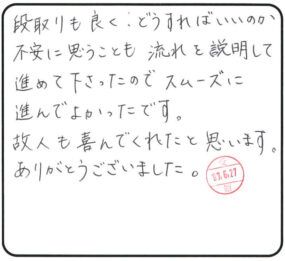 段取りも良く:どうすればいいのか
不安に思うことも 流れを説明して
進めて下さったので スムーズに
進んでよかったです。
故人も喜んでくれたと思います。
ありがとうございました。